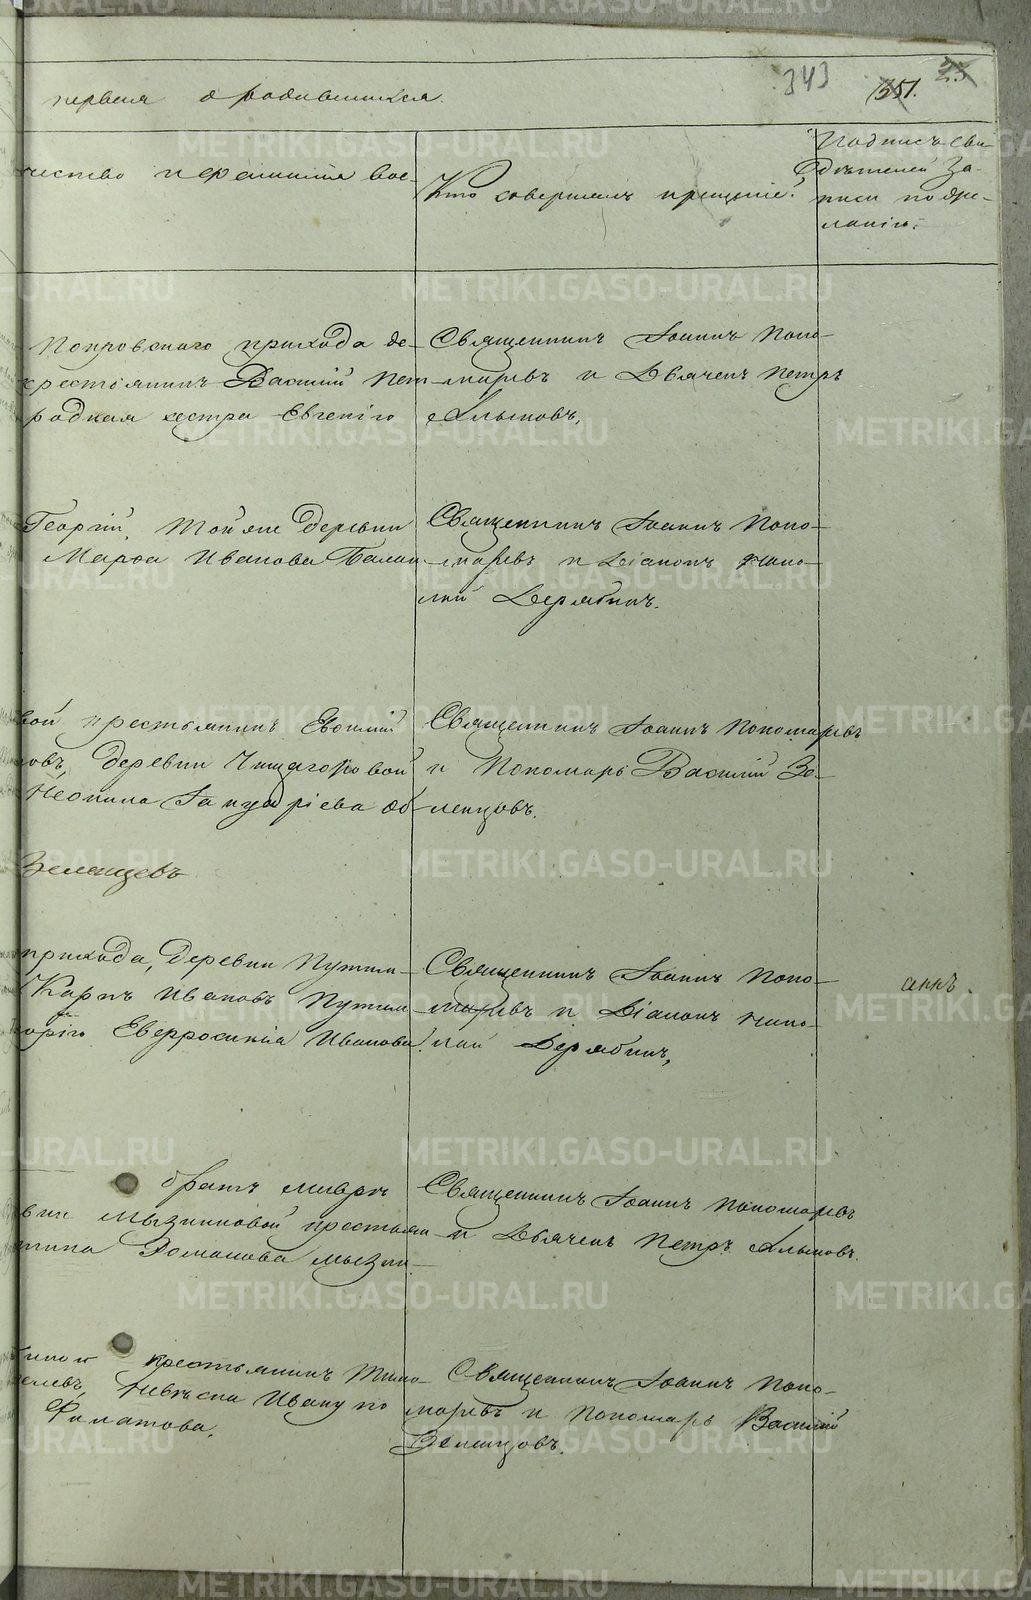 343 351. 23
первая о родившихся.
чество и фамилия вос-
Кто совершалъ крещеніе?
Подпись сви-
дѣтелей за-
писи по же-
ланію.
Покровскаго прихода де-
крестьянинъ Василий Пет
родная сестра Евгенію
Священникъ Іоаннъ Поно-
маревъ и Дьячекъ Петръ
Алыповъ,
Георгій, той же деревни
Марѳа Иванова
Священникъ Іоаннъ Поно-
маревъ и Діаконъ Нико-
лай Дерябинъ.
вой крестьянинъ Евѳимій
ловъ, деревни
Неонила Іануаріева об
Священникъ Іоаннъ Пономаревъ
и Пономарь Василій Зе-
ленцовъ.
Зеленцевъ
прихода, деревни Путил-
Карпъ Ивановъ Путил
Евфросинія Иванова.
Священникъ Іоаннъ Поно-
маревъ и Діаконъ Нико-
лай Дерябинъ,
братъ
вни Мызниковой крестьян
Романова Мызни-
Священникъ Іоаннъ Пономаревъ
и Дьячекъ Петръ Алыповъ.
крестьянинъ Тимо-
невѣста Ивану по
Филатова.
Священникъ Іоаннъ Поно-
маревъ и Пономарь Василій
Зеленцовъ.
METRIKI.GASO-URAL.RU